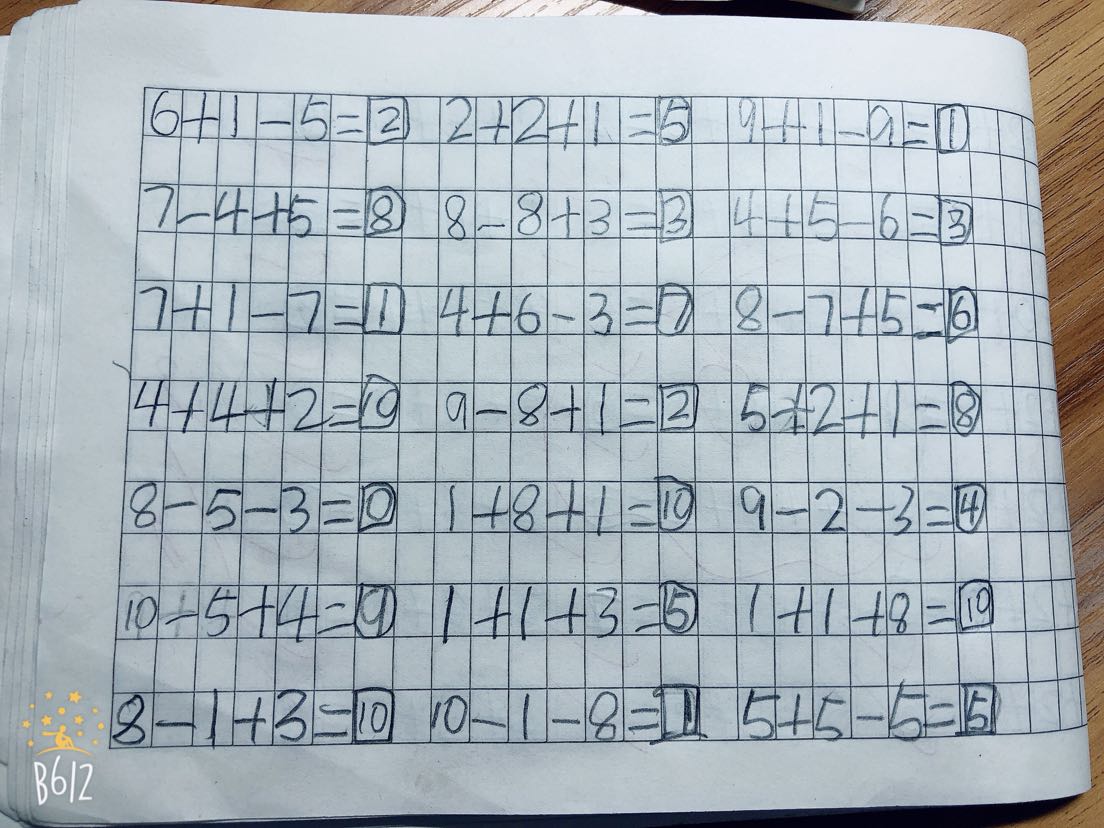 6+1-5=2 2+2+1=5 9+1-9=1
7-4+5=8 8-8+3=3 4+5-6=3
7+1-7=1 4+6-3=7 8-7+5=6
4+4+2=10 9-8+1=2 5+2+1=8
8-5-3=0 1+8+1=10 9-2-3=4
10-5+4=9 1+1+3=5 1+1+8=10
8-1+3=10 10-1-8=1 5+5-5=5
B612